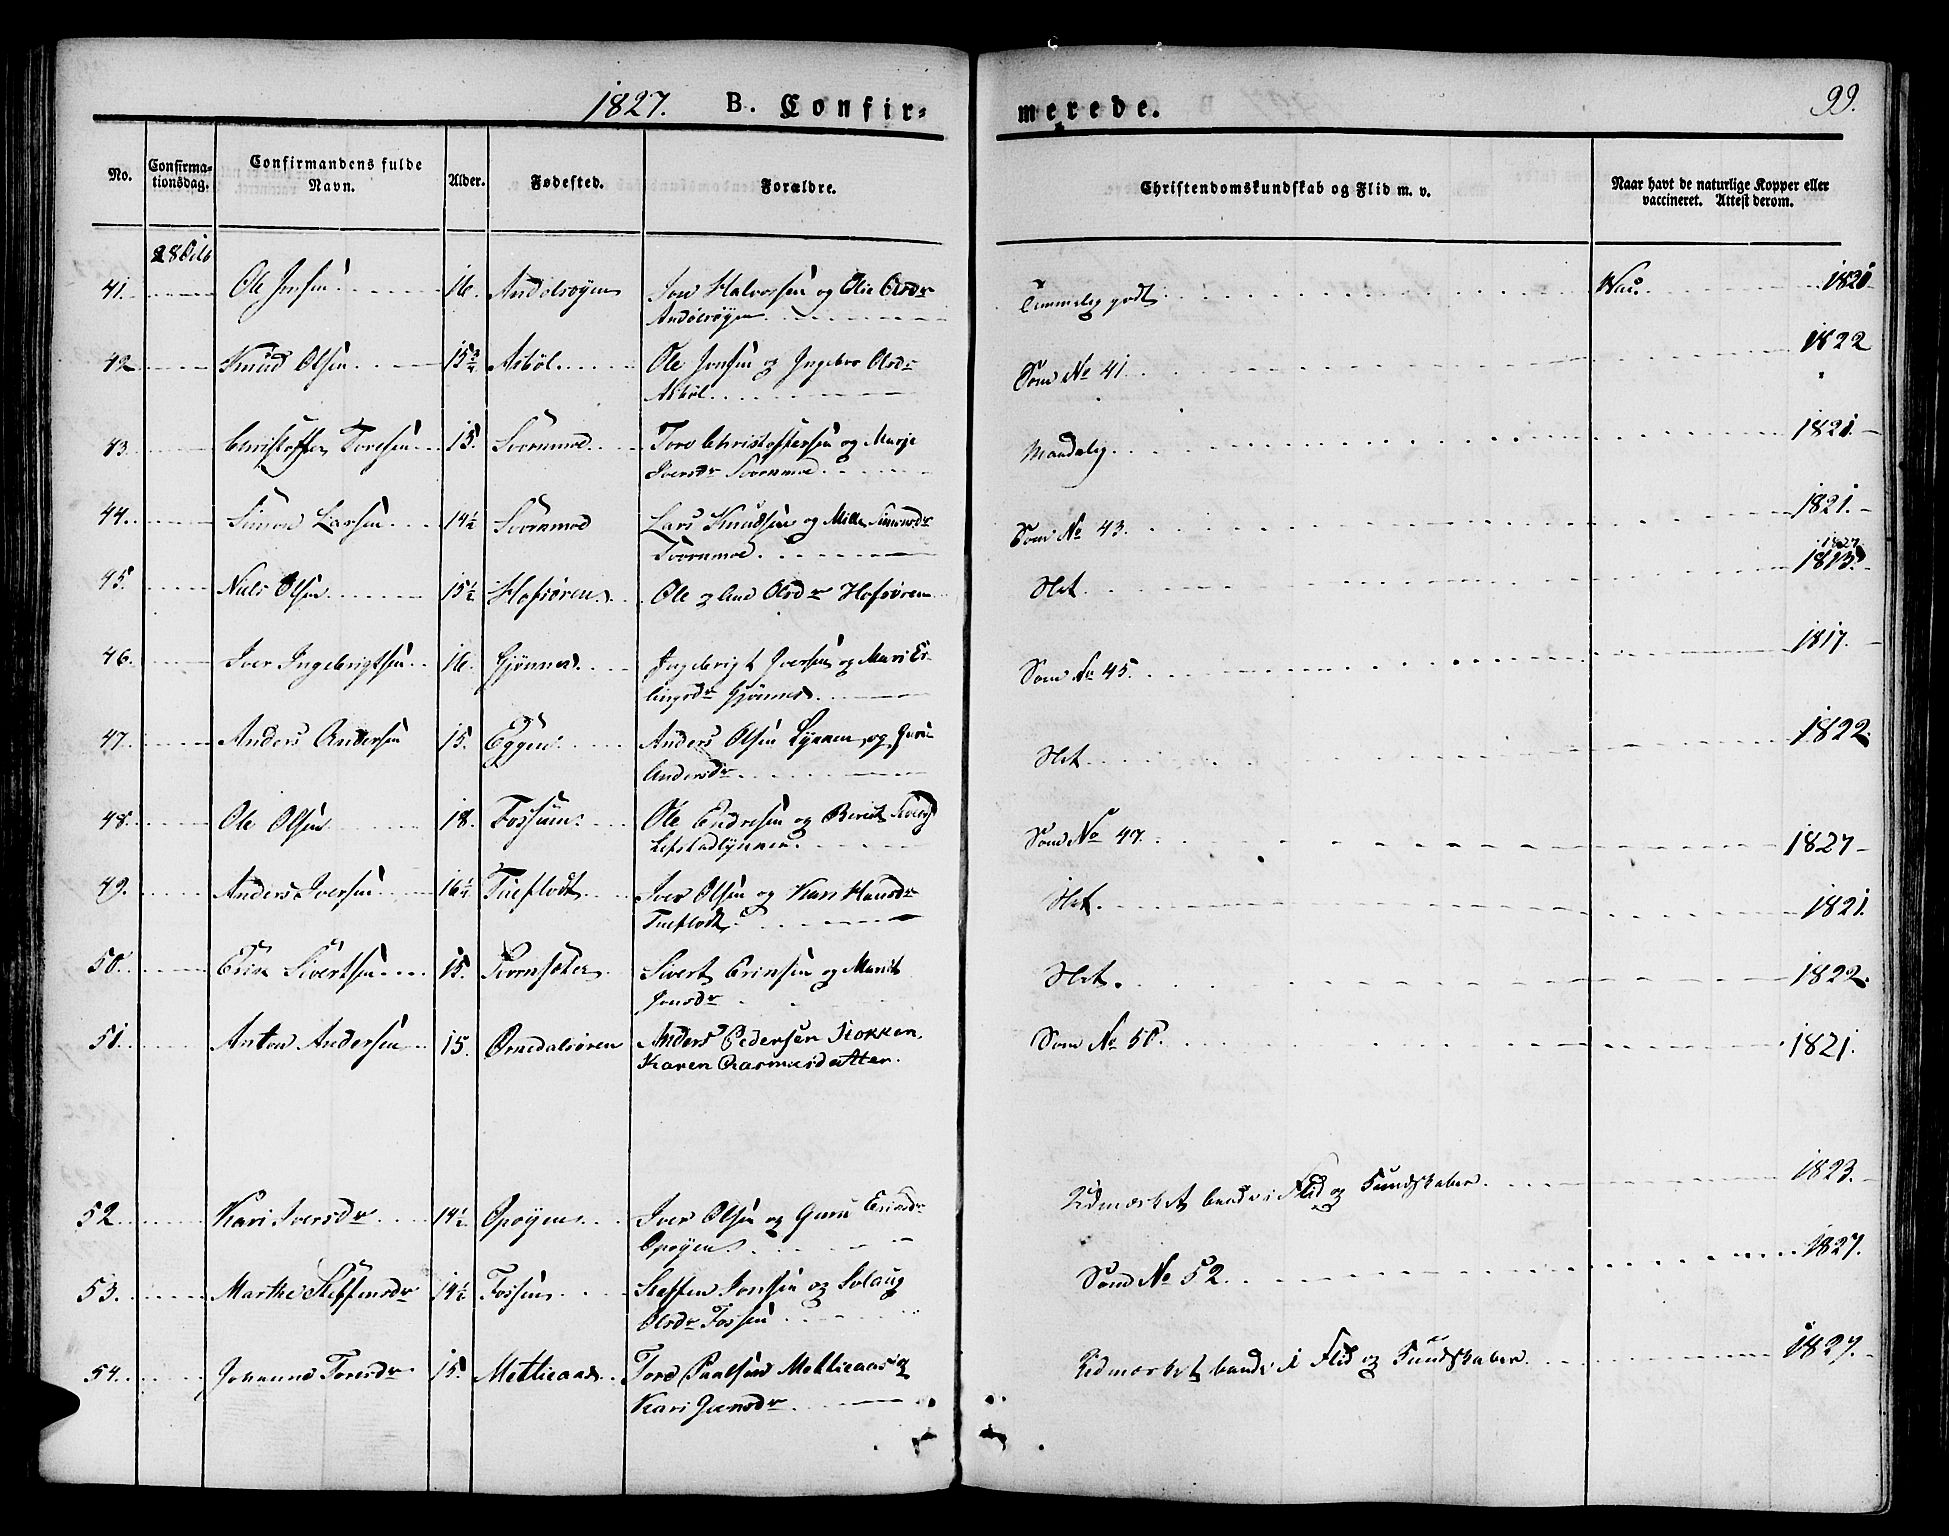 1827. B. Confir-
merede.
99.
No.
Confirma-
tionsdag.
Confirmandens fulde
Navn.
Alder.
Fødested.
Forældre.
Christendomskundskab og Flid m. v.
Naar havt de naturlige Kopper eller
vaccineret. Attest derom.
41. Ole Jonsen 16. Jon Halvorsen og
Temmelig godt Vac. 1821
42 Knud Olsen 15 Ole Jonsen og Olsdr
Som No 41. 1822
43. Christoffer Toresen 15. Tore Christoffersen og Marje
Iversdr
Maadelig 1821.
44. Simon Larsen 14½ Lars Knudsen og Simonsdr
Som No 43. 1821.
45. Niels Olsen 15½ Hofsøren Ole og Ane Olsdr Hofsøren
Slet 1827
1813.
46. Iver Ingebrigtsen 16. Gjønnes Ingebrigt Iversen og Mari Er-
lingsdr Gjønnes
Som No 45. 1817.
47. Anders Andersen 15. Eggen Anders Olsen Lynnem og Guri
Andersdr
Slet 1822.
48. Ole Olsen 18. Fossum Ole Endresen og Berit
Som No 47. 1827
49. Anders Iversen 16½ Tueflodt Iver Olsen og Kari Hansdr
Tueflodt
Slet. 1821.
50. Erik Sivertsen 15. Sivert Eriksen og Marit
Jonsdr
Slet. 1822.
51. Anton Andersen 15. Ørnedalsøren Anders Pedersen Stokken
Karen Rasmusdatter.
Som No 50. 1821.
52. Kari Iversdr 14½ Opøyen Iver Olsen og Guru Eriksdr
Opøyen
Udmærket baade i Flid og Kundskaber. 1823.
53. Marthe Steffensdr 14½ Fossen Steffen Jonsen og Solaug
Olsdr Fossen
Som No 52. 1827.
54. Johanne Toresdr 15. Metlieaas Tore Paalsen Metlieaas og
Kari Jensdr
Udmærket baade i Flid og Kundskaber 1827.